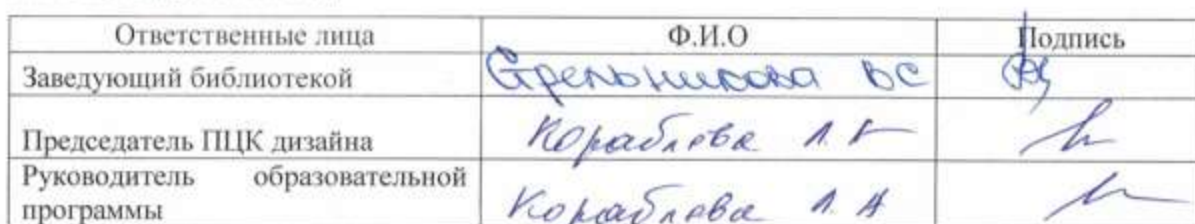 Ответственные лица Ф.И.О Подпись
Заведующий библиотекой Стрельникова ВС
Председатель ПЦК дизайна Кораблева Л.
Руководитель образовательной
программы Кораблева Л. А